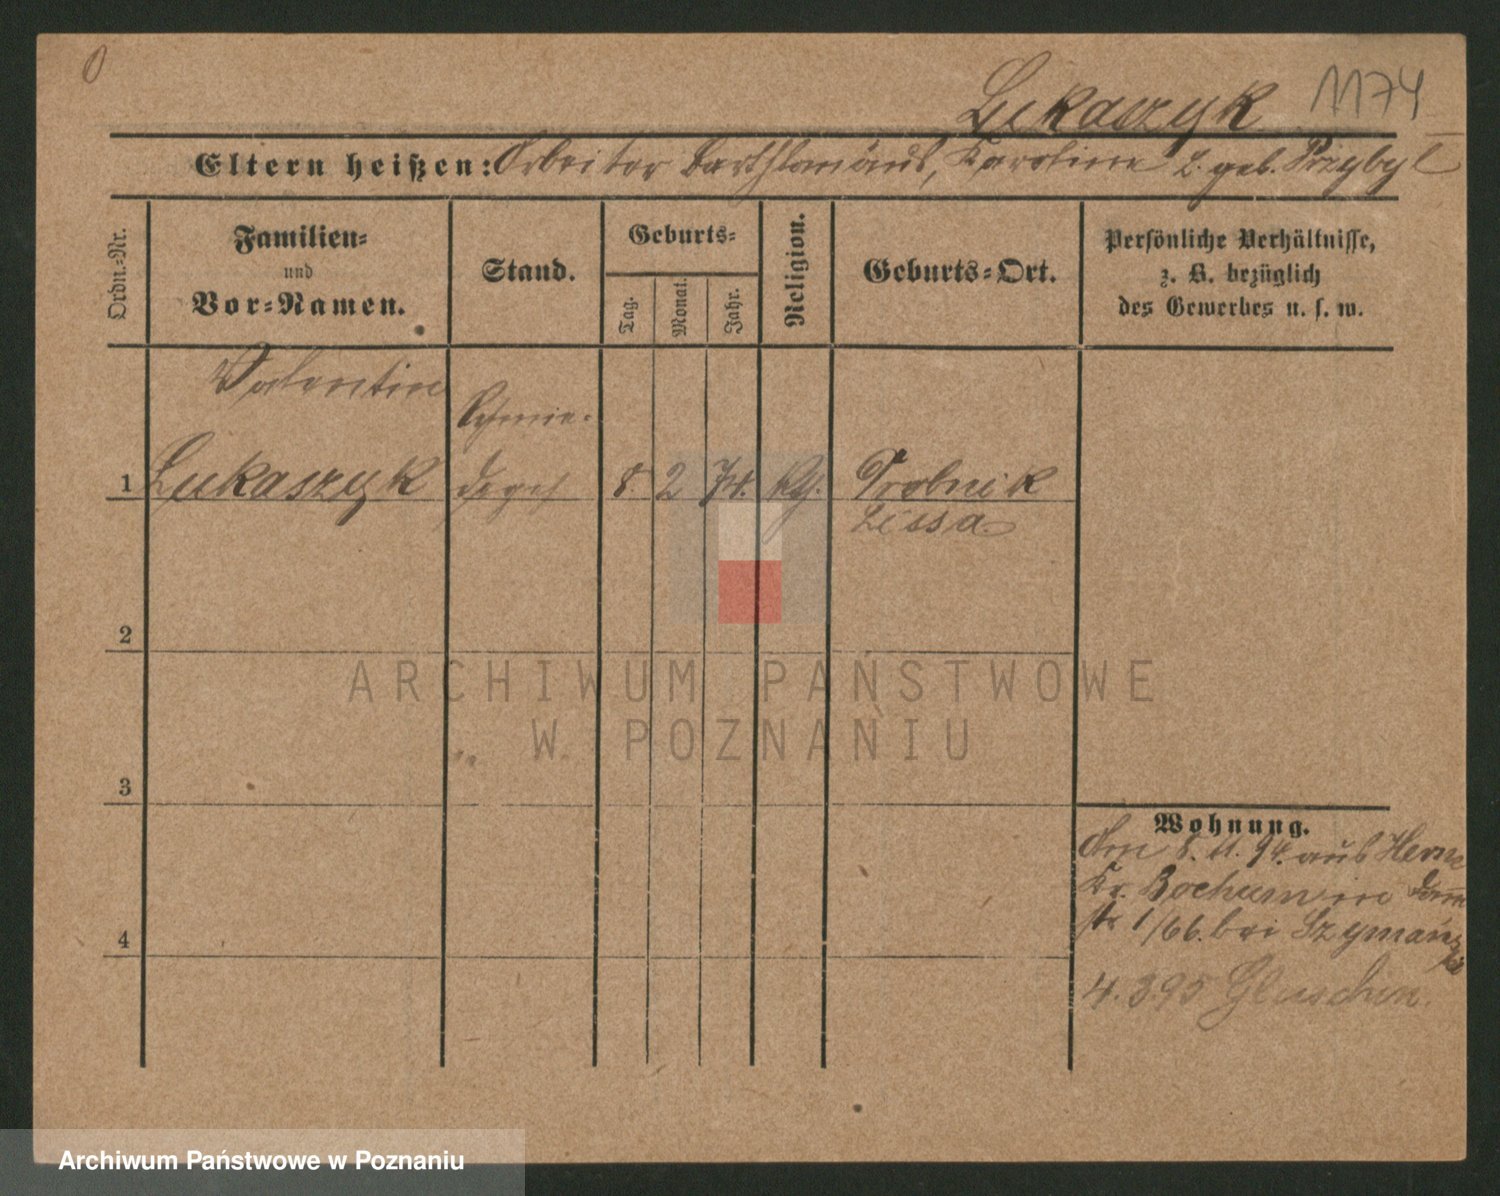 0
Lukaszyk 1174
Eltern heißen: Arbeiter Barthlomäus, Karoline L. geb. Przybyl
Ordn.-Nr.
Familien-
und
Vor-Namen.
Stand.
Geburts-
Tag.
Monat.
Jahr.
Religion.
Geburts-Ort.
Persönliche Verhältnisse,
z. B. bezüglich
des Gewerbes u. s. w.
Valentin
Schmie-
1 Lukaszyk deges 8. 2 74. kth. Probnik
Lissa.
2
3
4
Wohnung.
Am 8.11.94. aus Herne
Kr. Bochum in Damm
str 1/66. bei Szymańs
ki
4.3.95 Gluschin.
ARCHIWUM PAŃSTWOWE
W POZNANIU
Archiwum Państwowe w Poznaniu